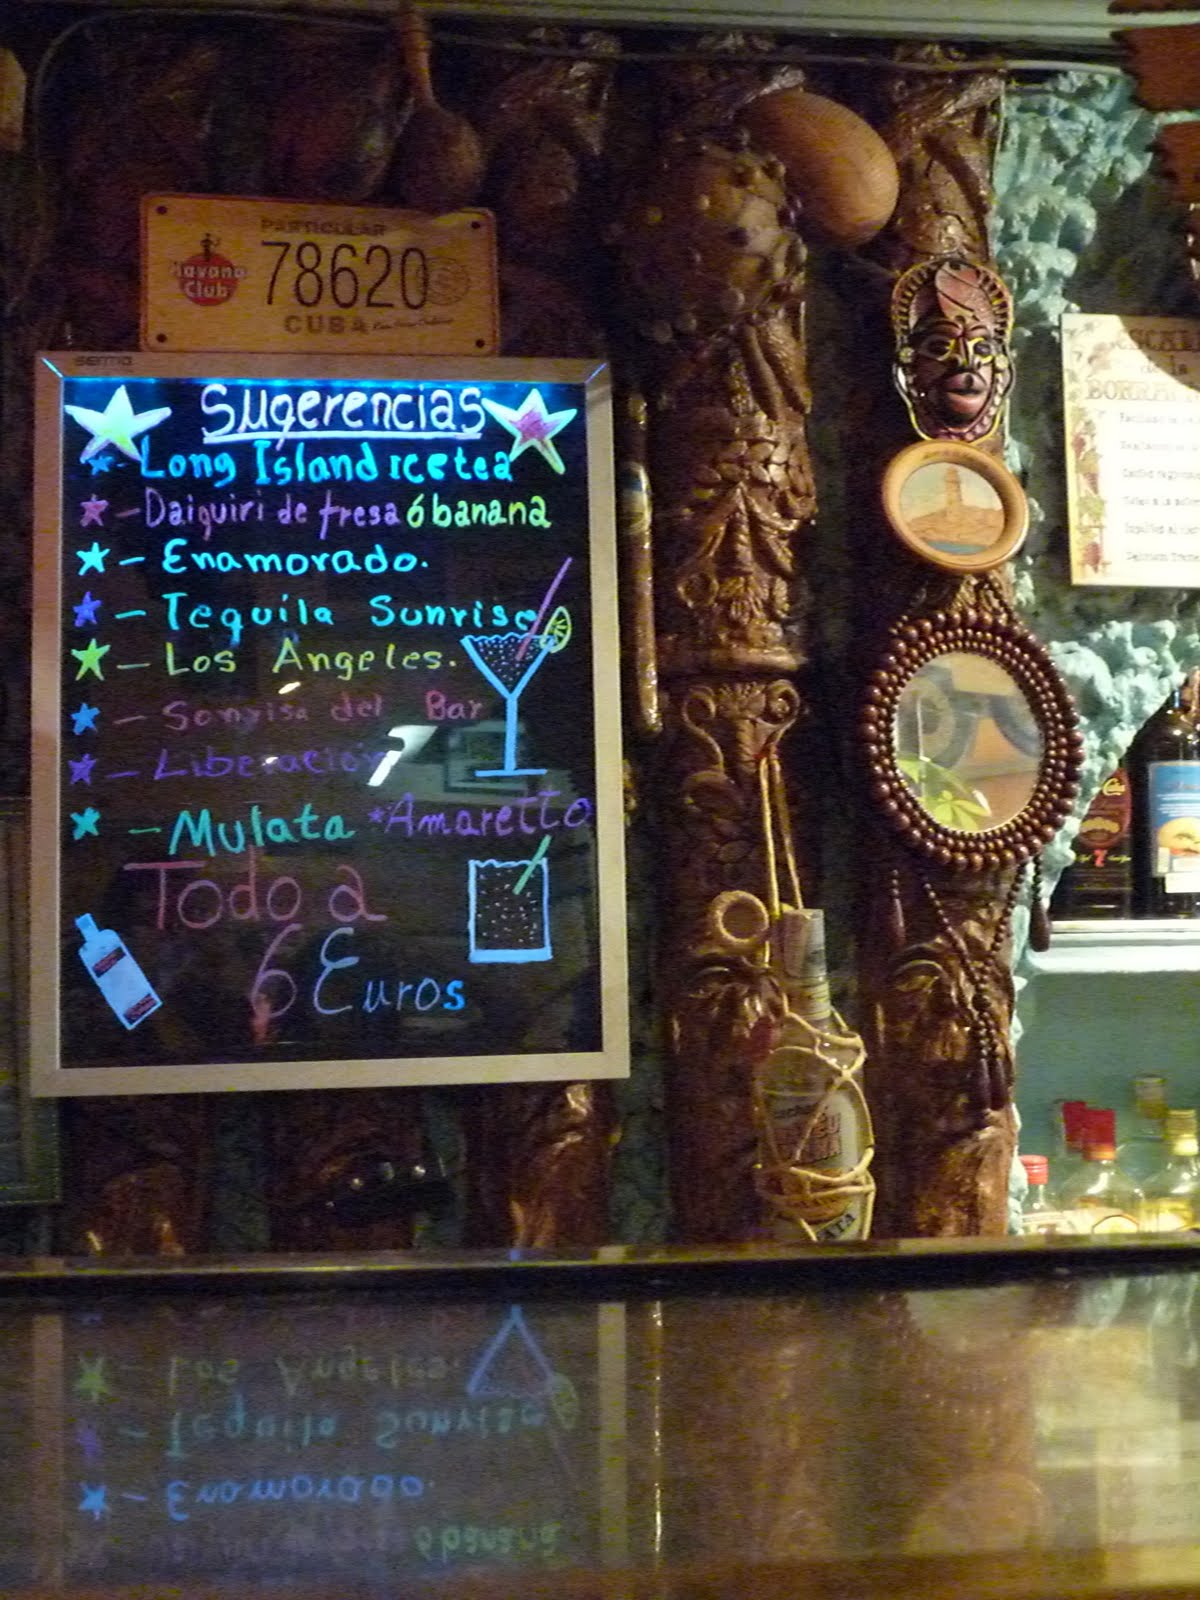 PARTICULAR
Havana Club
78620
CUBA
Sugerencias
- Long Island icetea
- Daiquiri de fresa ó banana
- Enamorado.
- Tequila Sunrise
- Los Angeles.
- Sonrisa del Bar
- Liberación
- Mulata *Amaretto
Todo a
6 Euros
ESCAL
de la
BORRA